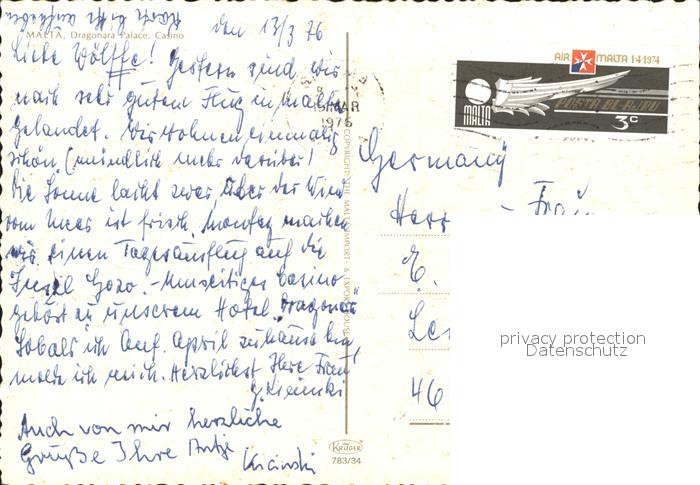 Karte bitte aufheben
MALTA, Dragonara Palace, Casino
den 13/3 76
Liebe Wölffe! Gestern sind wir
nach sehr gutem Flug in Malta
gelandet. Wir wohnen einmalig
schön (mündlich mehr darüber!
Die Sonne lacht zwar, aber der Wind
vom Meer ist frisch. Montag machen
wir einen Tagesausflug auf die
Insel Gozo. - Umseitiges Casino
gehört zu unserem Hotel "Dragonara"
Sobald ich Anf. April zuhause bin,
melde ich mich. Herzlichst Ihre Frau
Auch von mir herzliche
Grüße Ihre Antje
MAR
1976
COPYRIGHT: THE MALTA IMPORT & EXPORT HOUSE
KRÜGER
783/34
AIR MALTA 1·4·1974
MALTA
POSTA BL-AJRU
3c
Germany
Herr - Frau
E.
46
privacy protection
Datenschutz